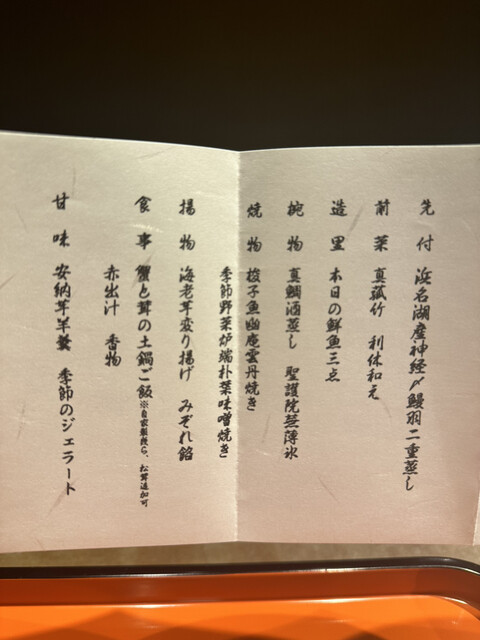 先付 浜名湖産神経〆鰻羽二重蒸し
前菜 真菰竹 利休和え
造里 本日の鮮魚三点
椀物 真鯛酒蒸し 聖護院蕪薄氷
焼物 梭子魚幽庵雲丹焼き
季節野菜炉端朴葉味噌焼き
揚物 海老茸変り揚げ みぞれ餡
食事 蟹と茸の土鍋ご飯※自家製我ら、松茸追加可
赤出汁 香物
甘味 安納芋羊羹 季節のジェラート